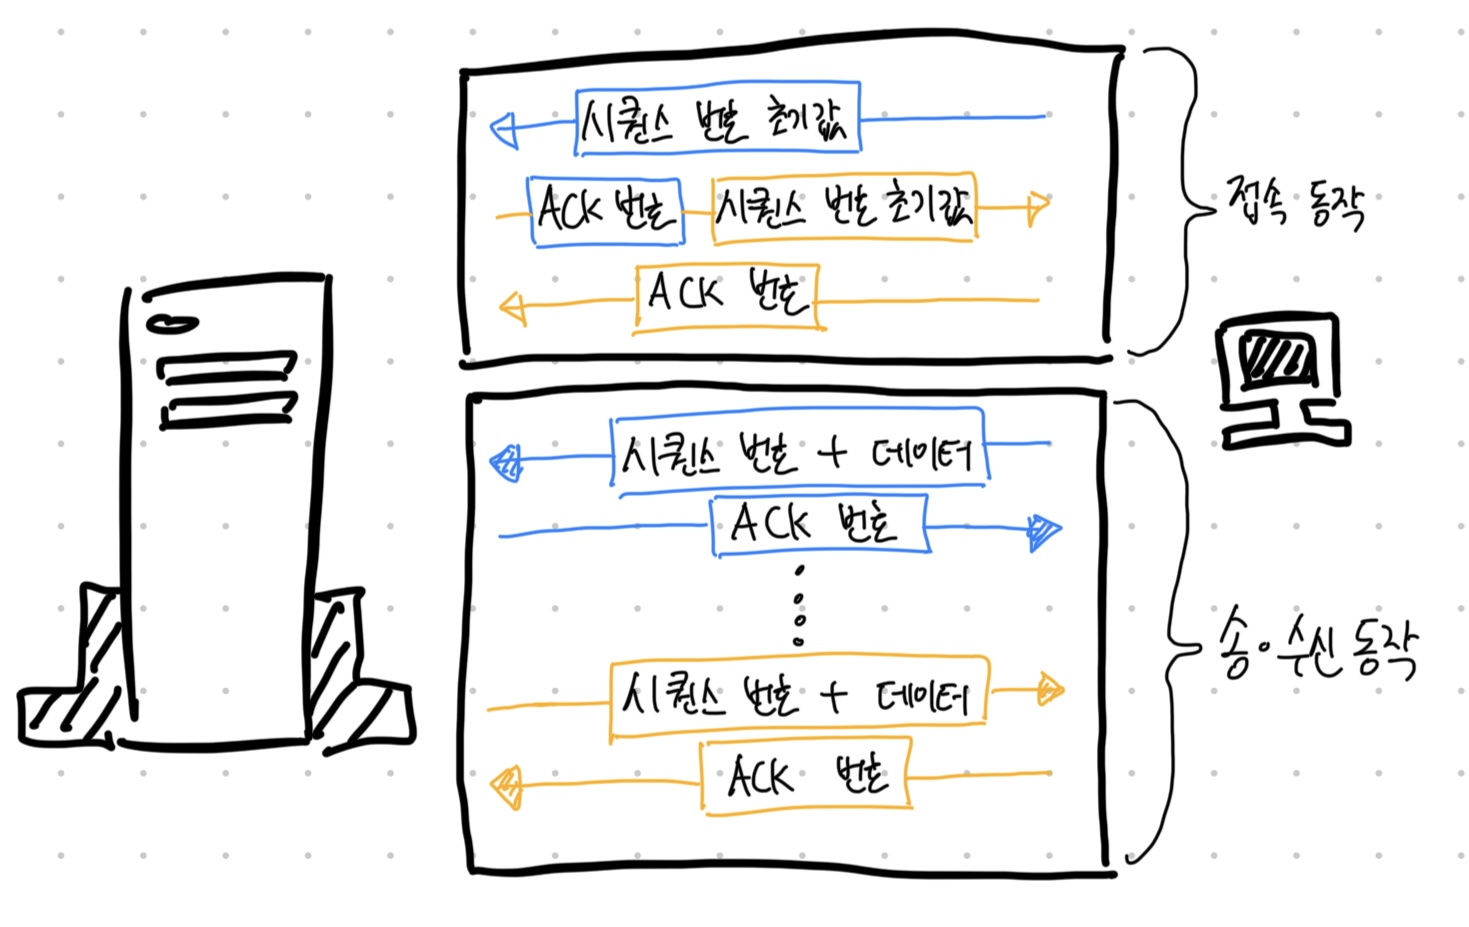 시퀀스 번호 초기값
ACK 번호 시퀀스 번호 초기값
ACK 번호
접속 동작
시퀀스 번호 + 데이터
ACK 번호
시퀀스 번호 + 데이터
ACK 번호
송·수신 동작